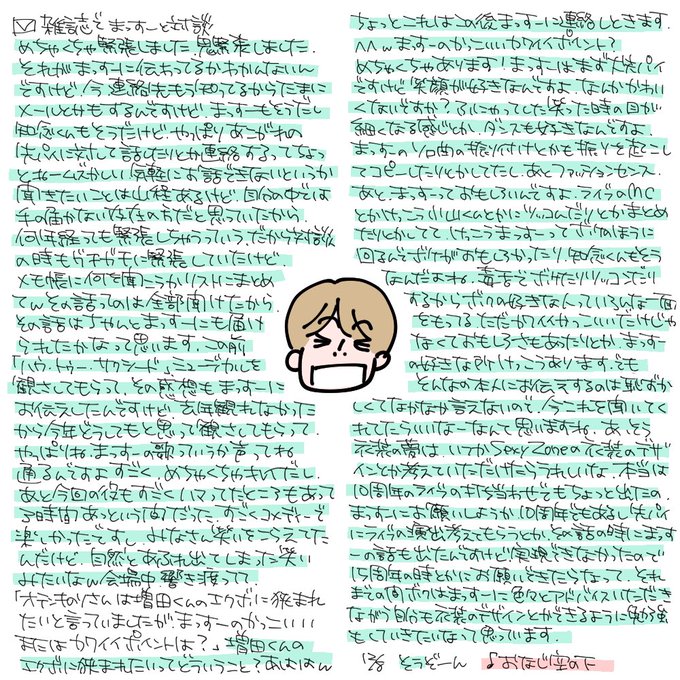 雑誌でまっすーと対談
めちゃくちゃ緊張しました。
それがまっすーに伝わってるかわかんないん
ですけど今連絡先もう知ってるからたまに
メールとかもするんですけど、まっすーもそうだし
知念くんもそうだけど、やっぱりあこがれの
先パイに対して話したりとか連絡するってちょっ
とホームズかしい。気軽にお話できないというか
聞きたいことは山程あるけど、自分の中では
手の届かない存在の方だと思っていたから、
何年経っても緊張しちゃうっていう。だから対談
の時もドギドギに緊張していたけど
メモ帳に何を聞こうかリストにまとめ
てんその話ってのは全部聞けたから
その話はちゃんとまっすーにも届け
られたかなって思います。この前
「ハウ・トゥー・サクシード」ミュージカルを
観させてもらって、その感想もまっすーに
お伝えしたんですけど、去年観れなかった
から今年どうしてもと思って観させてもらって、
やっぱりね、まっすーの歌っていうか声ってね
通るんですよ、すごく。めちゃくちゃキレイだし、
あと今回の役もすごくハマってたところもあって
3時間あっという間だった。すごくコメディーで
楽しかったですし、みなさん笑いをこらえてた
んだけど、自然とあふれ出てしまった笑い
みたいなw会場中響き渡って、
「オテンキのりさんは増田くんのエクボに挟まれ
たいと言っていましたが、まっすーのかっこいい
またはカワイイポイントは？」増田くんの
エクボに挟まれたいってどういうこと？あははw
ちょっとこれはこの後まっすーに連絡しときます。
んwまっすーのかっこいいカワイイポイント？
めちゃくちゃあります！まっすーはまず大先パイ
ですけど笑顔が好きなんですよ。なんかかわい
くないですか？ふにゃってした笑った時の目が
細くなる感じとか、ダンスも好きなんですよ。
まっすーのソロ曲の振り付けとかも振りを起こし
てコピーしたりとかしてたし、あとファッションセンス。
あと、まっすーっておもしろいんですよ。ライブのMC
とかけっこう小山くんとかにツッコんだりとかまとめ
たりとかしてて、けっこうまっすーってボケのほうに
回るんでボケがおもしろかったり、知念くんもそう
なんだよね。毒舌でボケたりツッコんだり
するからボクの好きな人っていろんな一面
をもってる。ただカワイイかっこいいだけじゃ
なくておもしろさもあったりとか、まっすー
の好きな所けっこうあります。でも
そんなの本人にお伝えするのは恥ずか
しくてなかなか言えないので、今これを聞いてく
れてたらいいなーなんて思いますね。あ、そう
衣装の夢は、いつかSexy Zoneの衣装のデザ
インとか考えていただけたらうれしいな。本当は
10周年のライブの打ち合わせでもちょっと出たの。
まっすーにお願いしようか10周年でもあるし先パイ
にライブの演出考えてもらうとか、その話の時にまっす
ーの話も出たんですけど実現できなかったので
15周年の時とかにお願いできたらなって、それ
までの間ボクはまっすーに色々とアドバイスいただき
ながら自分も衣装のデザインとかできるように勉強
もしていきたいなって思っています。
12/8 そうどーん ♪おなじ空の下